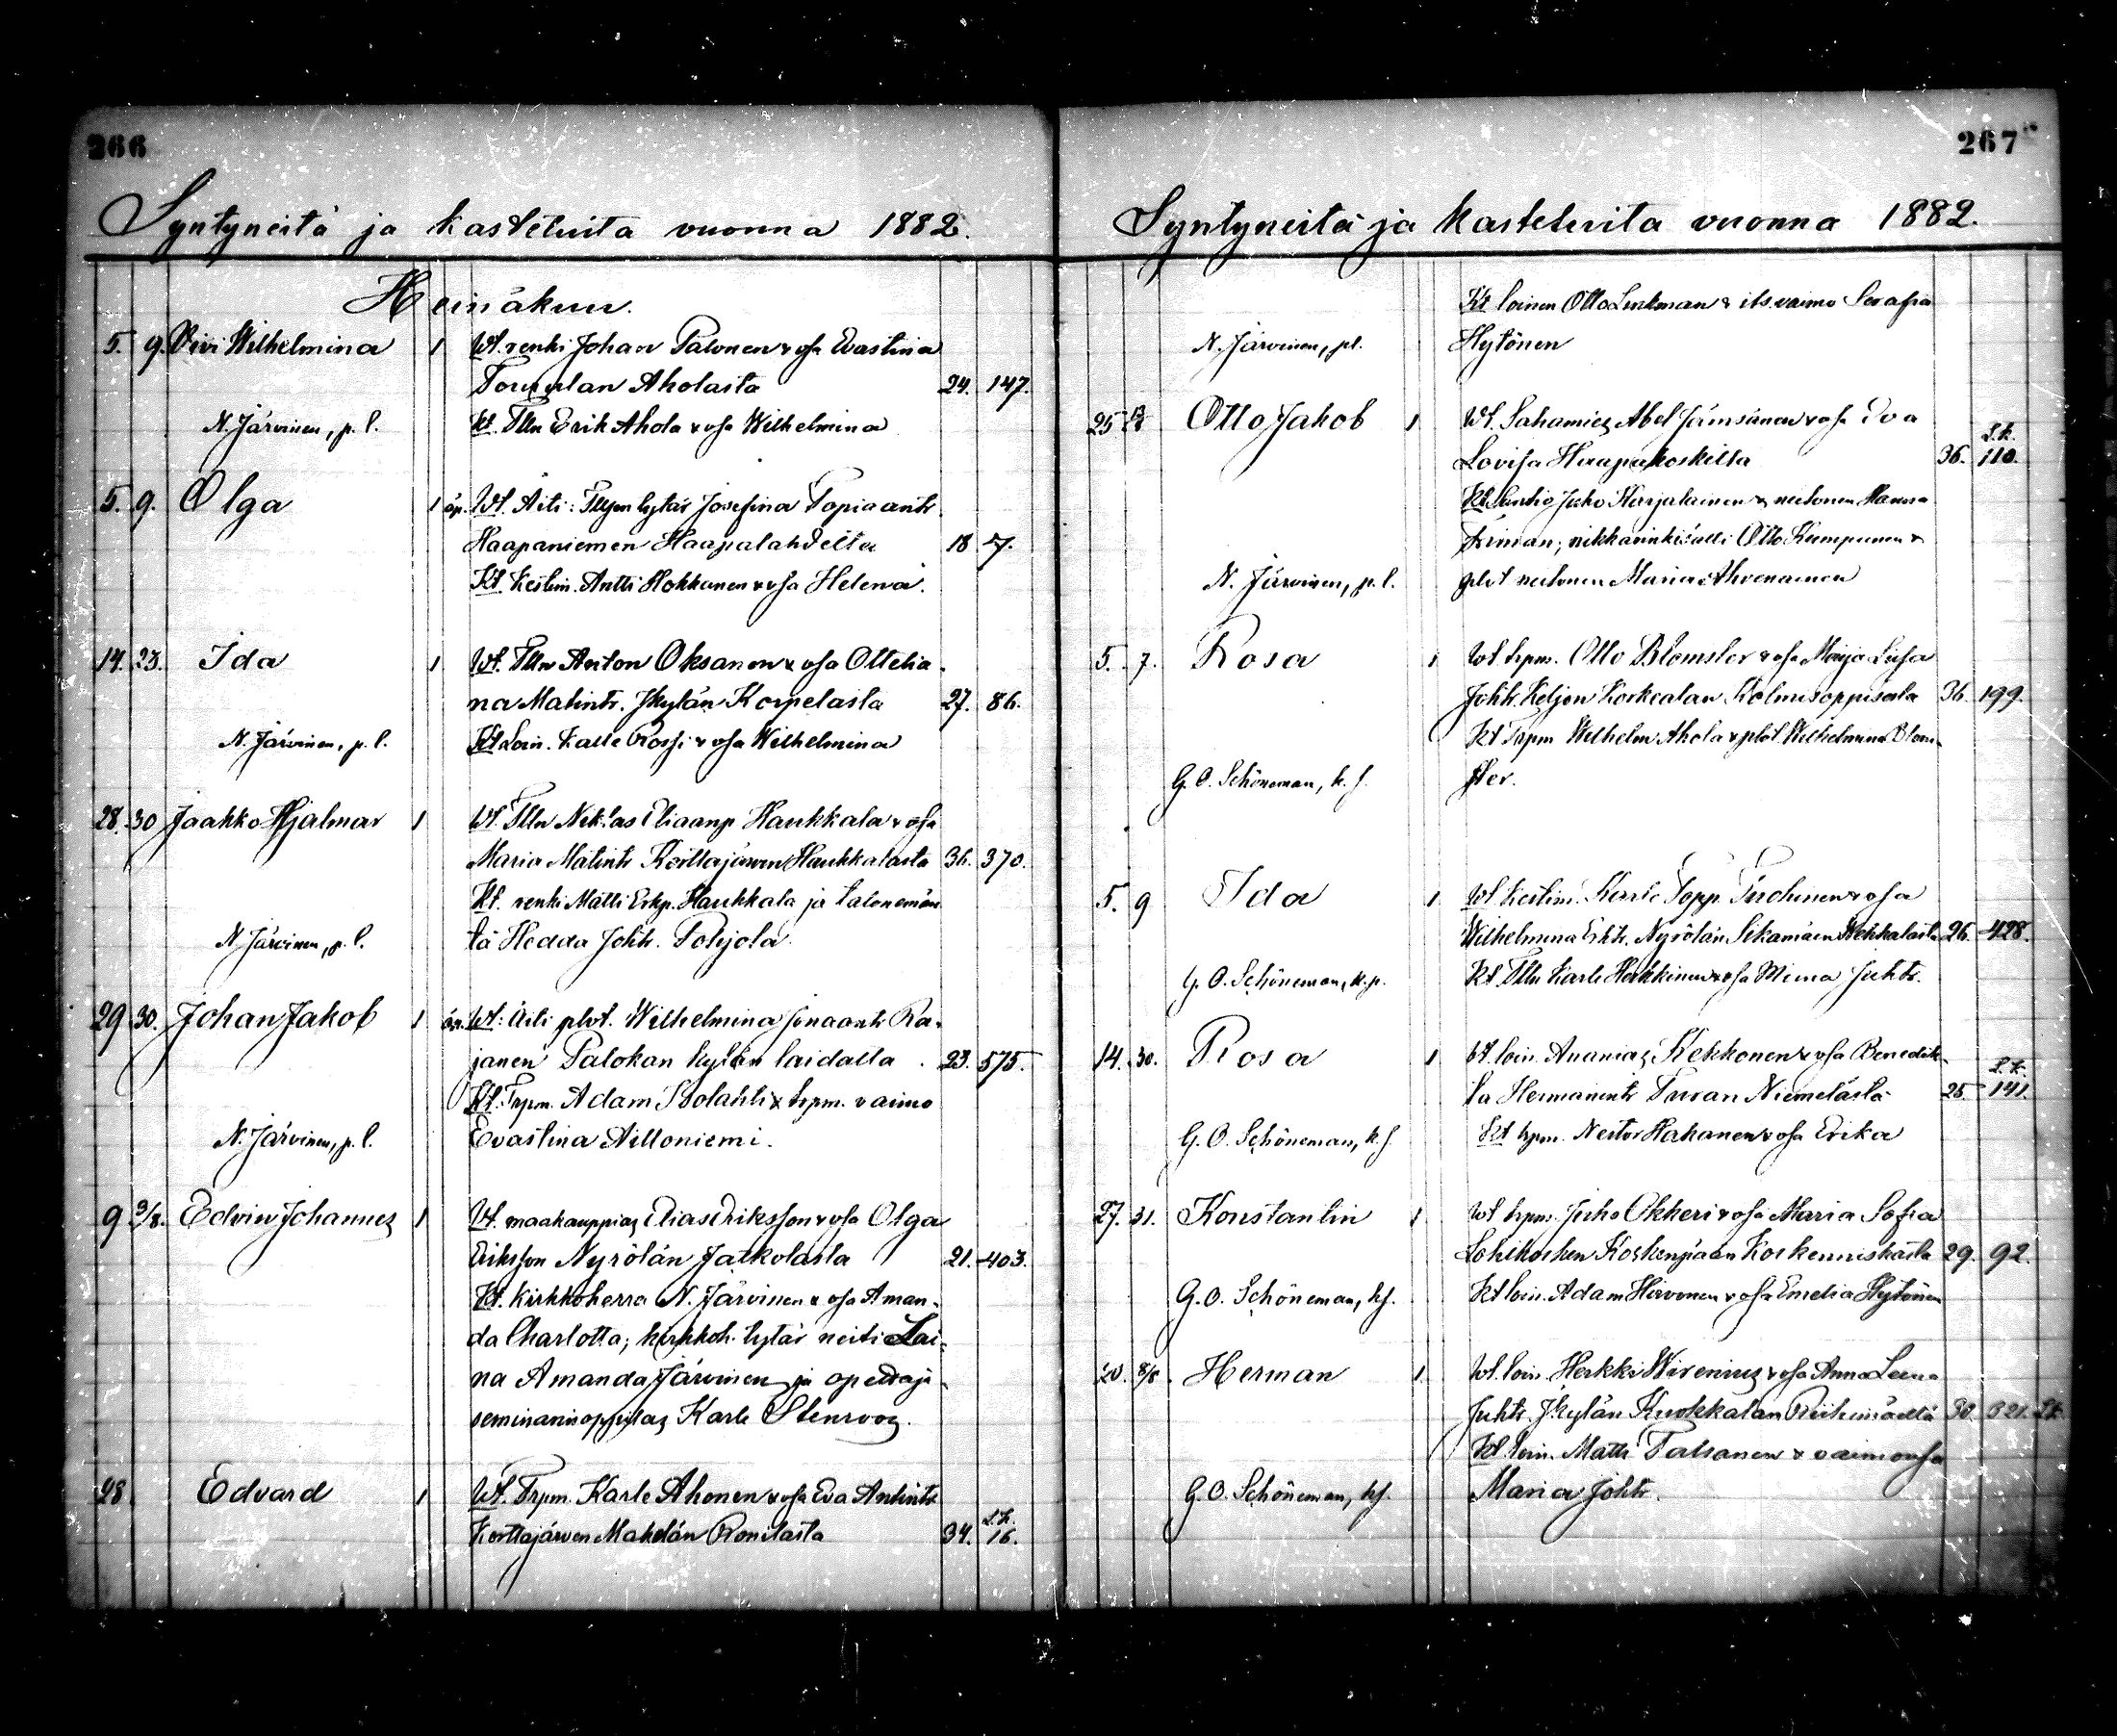 266
Syntyneitä ja kastetuita vuonna 1882.
Heinäkuu.
5. 9. Oivi Wilhelmina 1 Wt. renki Johan Palonen & vsa Evastina
Tourulan Aholasta 24. 147.
N. Järvinen, p. l. Kt. Tlln Erik Ahola & vsa Wilhelmina
5. 9. Olga 1 äp. Wt. Äiti: Tllsen tytär Josefina Topiaantr.
Haapaniemen Haapalahdelta 18 7.
Kt. Kestim. Antti Hokkanen & vsa Helena.
14. 23. Ida 1 Wt. Tlln Anton Oksanen & vsa Ottelia-
na Matintr. Jkylän Korpelasta 27. 86.
N. Järvinen, p. l. Kt Loin. Kalle Rossi & vsa Wilhelmina
28. 30 Jaakko Hjalmar 1 Wt. Tlln Niklas Eliaanp Haukkala & vsa
Maria Matintr Korttajärven Haukkalasta 36. 370.
Kt. renki Matti Erkp. Haukkala ja talonemän
N. Järvinen, p. l. tä Hedda Johtr. Pohjola.
29 30. Johan Jakob 1 äp. Wt: Äiti plvt. Wilhelmina Jonaantr Ra-
janen Palokan kylän laidalla 23. 575.
Kt. Trpm. Adam Isolahti & trpm. vaimo
N. Järvinen, p. l. Evastina Aittoniemi.
9 3/8. Edvin Johannes 1 Wt. maakauppias Elias Eriksson & vsa Olga
Eriksson Nyrölän Jatkolasta 21. 403.
Kt. Kirkkoherra N. Järvinen & vsa Aman-
da Charlotta; kirkkoh. tytär neiti Lai-
na Amanda Järvinen ja opettaja-
seminarinoppilas Karle Stenroos.
28 Edvard 1 Wt. Trpm. Karle Ahonen & vsa Eva Antintr
Korttajärven Mäkelän Ronilasta 34. L.k. 16.
267
Syntyneitä ja kastetuita vuonna 1882.
Kt loinen Otto Lindman & its. vaimo Serafia
N. Järvinen, pl. Hytönen
25 Otto Jakob 1 Wt. Sahamies Abel Jämsänen & vsa Eva
Lovisa Haapakoskelta 36. L.k. 110.
Kt Suntio Juho Karjalainen & neitonen Hanna
Friman; nikkarinkisälli Otto Kumpunen &
N. Järvinen, p. l. plvt neitonen Maria Ahvenainen
5. 7. Rosa 1 Wt trpm. Otto Blomster & vsa Maija Liisa
Johtr. Keljon Korkealan Kolmisoppisesta 36. 199.
Kt Trpm Wilhelm Ahola & plvt Wilhelmina Blom-
G. O. Schöneman, k. s. ster.
5. 9 Ida 1 Wt Kestim. Karle Topp. Turhinen & vsa
Wilhelmina Erktr. Nyrölän Sikamäen Wehkalasta 26. 428.
G. O. Schöneman, k. p. Kt Tlln Karle Heikkinen & vsa Miina Juhtr.
14. 30. Rosa 1 Wt loin. Ananias Kekkonen & vsa Benedik-
ta Hermanintr Puran Niemelästä 25 L.k. 141.
G. O. Schöneman, k. s. Kt trpm. Nestor Hakanen & vsa Erika
27. 31. Konstantin 1 Wt trpm. Juho Okkeri & vsa Maria Sofia
Lohikosken Koskenpään Koskenniskasta 29. 92.
G. O. Schöneman, ks. Kt loin. Adam Hirvonen & vsa Emelia Hytönen
20. 8/8 Herman 1 Wt. loin. Herkki Wirenius & vsa Anna Leena
Juhtr. Jkylän Kuokkalan Riihimäeltä 30. 321. Lk.
Kt. loin. Matti Talsanen & vaimonsa
G. O. Schöneman, ks. Maria Johtr.